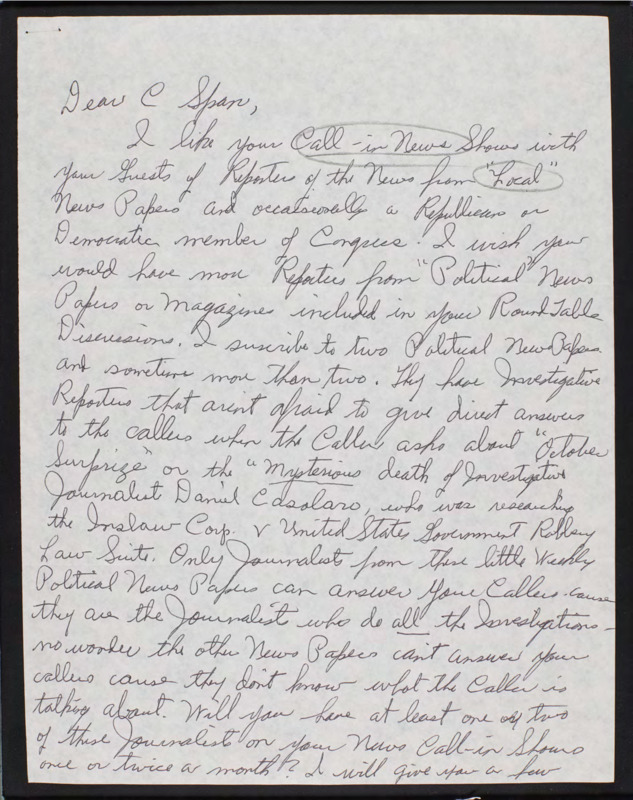 Dear C Span,
I like your Call-in News Shows with
your Guests of Reporters of the News from "Local"
News Papers and occassionally a Republican or
Democratic member of Congress. I wish you
would have more Reporters from "Political" News
Papers or Magazines included in your Round Table
Discussions. I suscribe to two Political NewsPapers
and sometime more than two. They have Investigative
Reporters that aren't afraid to give direct answers
to the callers when the Caller asks about "October
Surprize" or the "Mysterious death of Investigative
Journalist Daniel Casolaro, who was researching
the Inslaw Corp. v United States Government Robbery
Law Suite. Only Journalists from these little Weekly
Political News Papers can answer your Callers cause
they are the Journalists who do all the Investigations -
no wonder the other News Papers can't answer your
callers cause they don't know what the Caller is
talking about. Will you have at least one or two
of these Journalist on your News Call-in Shows
once or twice a month? I will give you a few